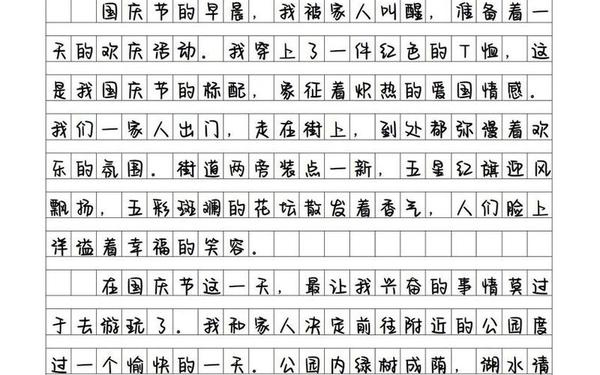 国庆节的早晨，我被家人叫醒，准备着一
天的欢庆活动。我穿上了一件红色的T恤，这
是我国庆节的标配，象征着炽热的爱国情感。
我们一家人出门，走在街上，到处都弥漫着欢
乐的氛围。街道两旁装点一新，五星红旗迎风
飘扬，五彩斑斓的花坛散发着香气，人们脸上
洋溢着幸福的笑容。
在国庆节这一天，最让我兴奋的事情莫过
于去游玩了。我和家人决定前往附近的公园度
过一个愉快的一天。公园内绿树成荫，湖水清